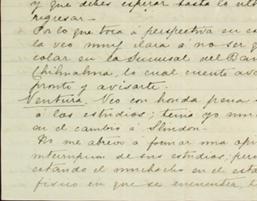 y que debes esperar hasta la ult
regresar.-
Por lo que toca a perspectiva en ca
la veo muy clara á no ser q
colar en la Sucursal del Ban
Chihuahua, lo cual cuento ave
pronto y avisarte.-
Ventura. Veo con honda pena
á los estudios; temo yo mu
en el cambio á
No me atrevo á formar una opi
interrumpa de sus estudios, pero
estando el muchacho en el esta
físico en que se encuentra, l